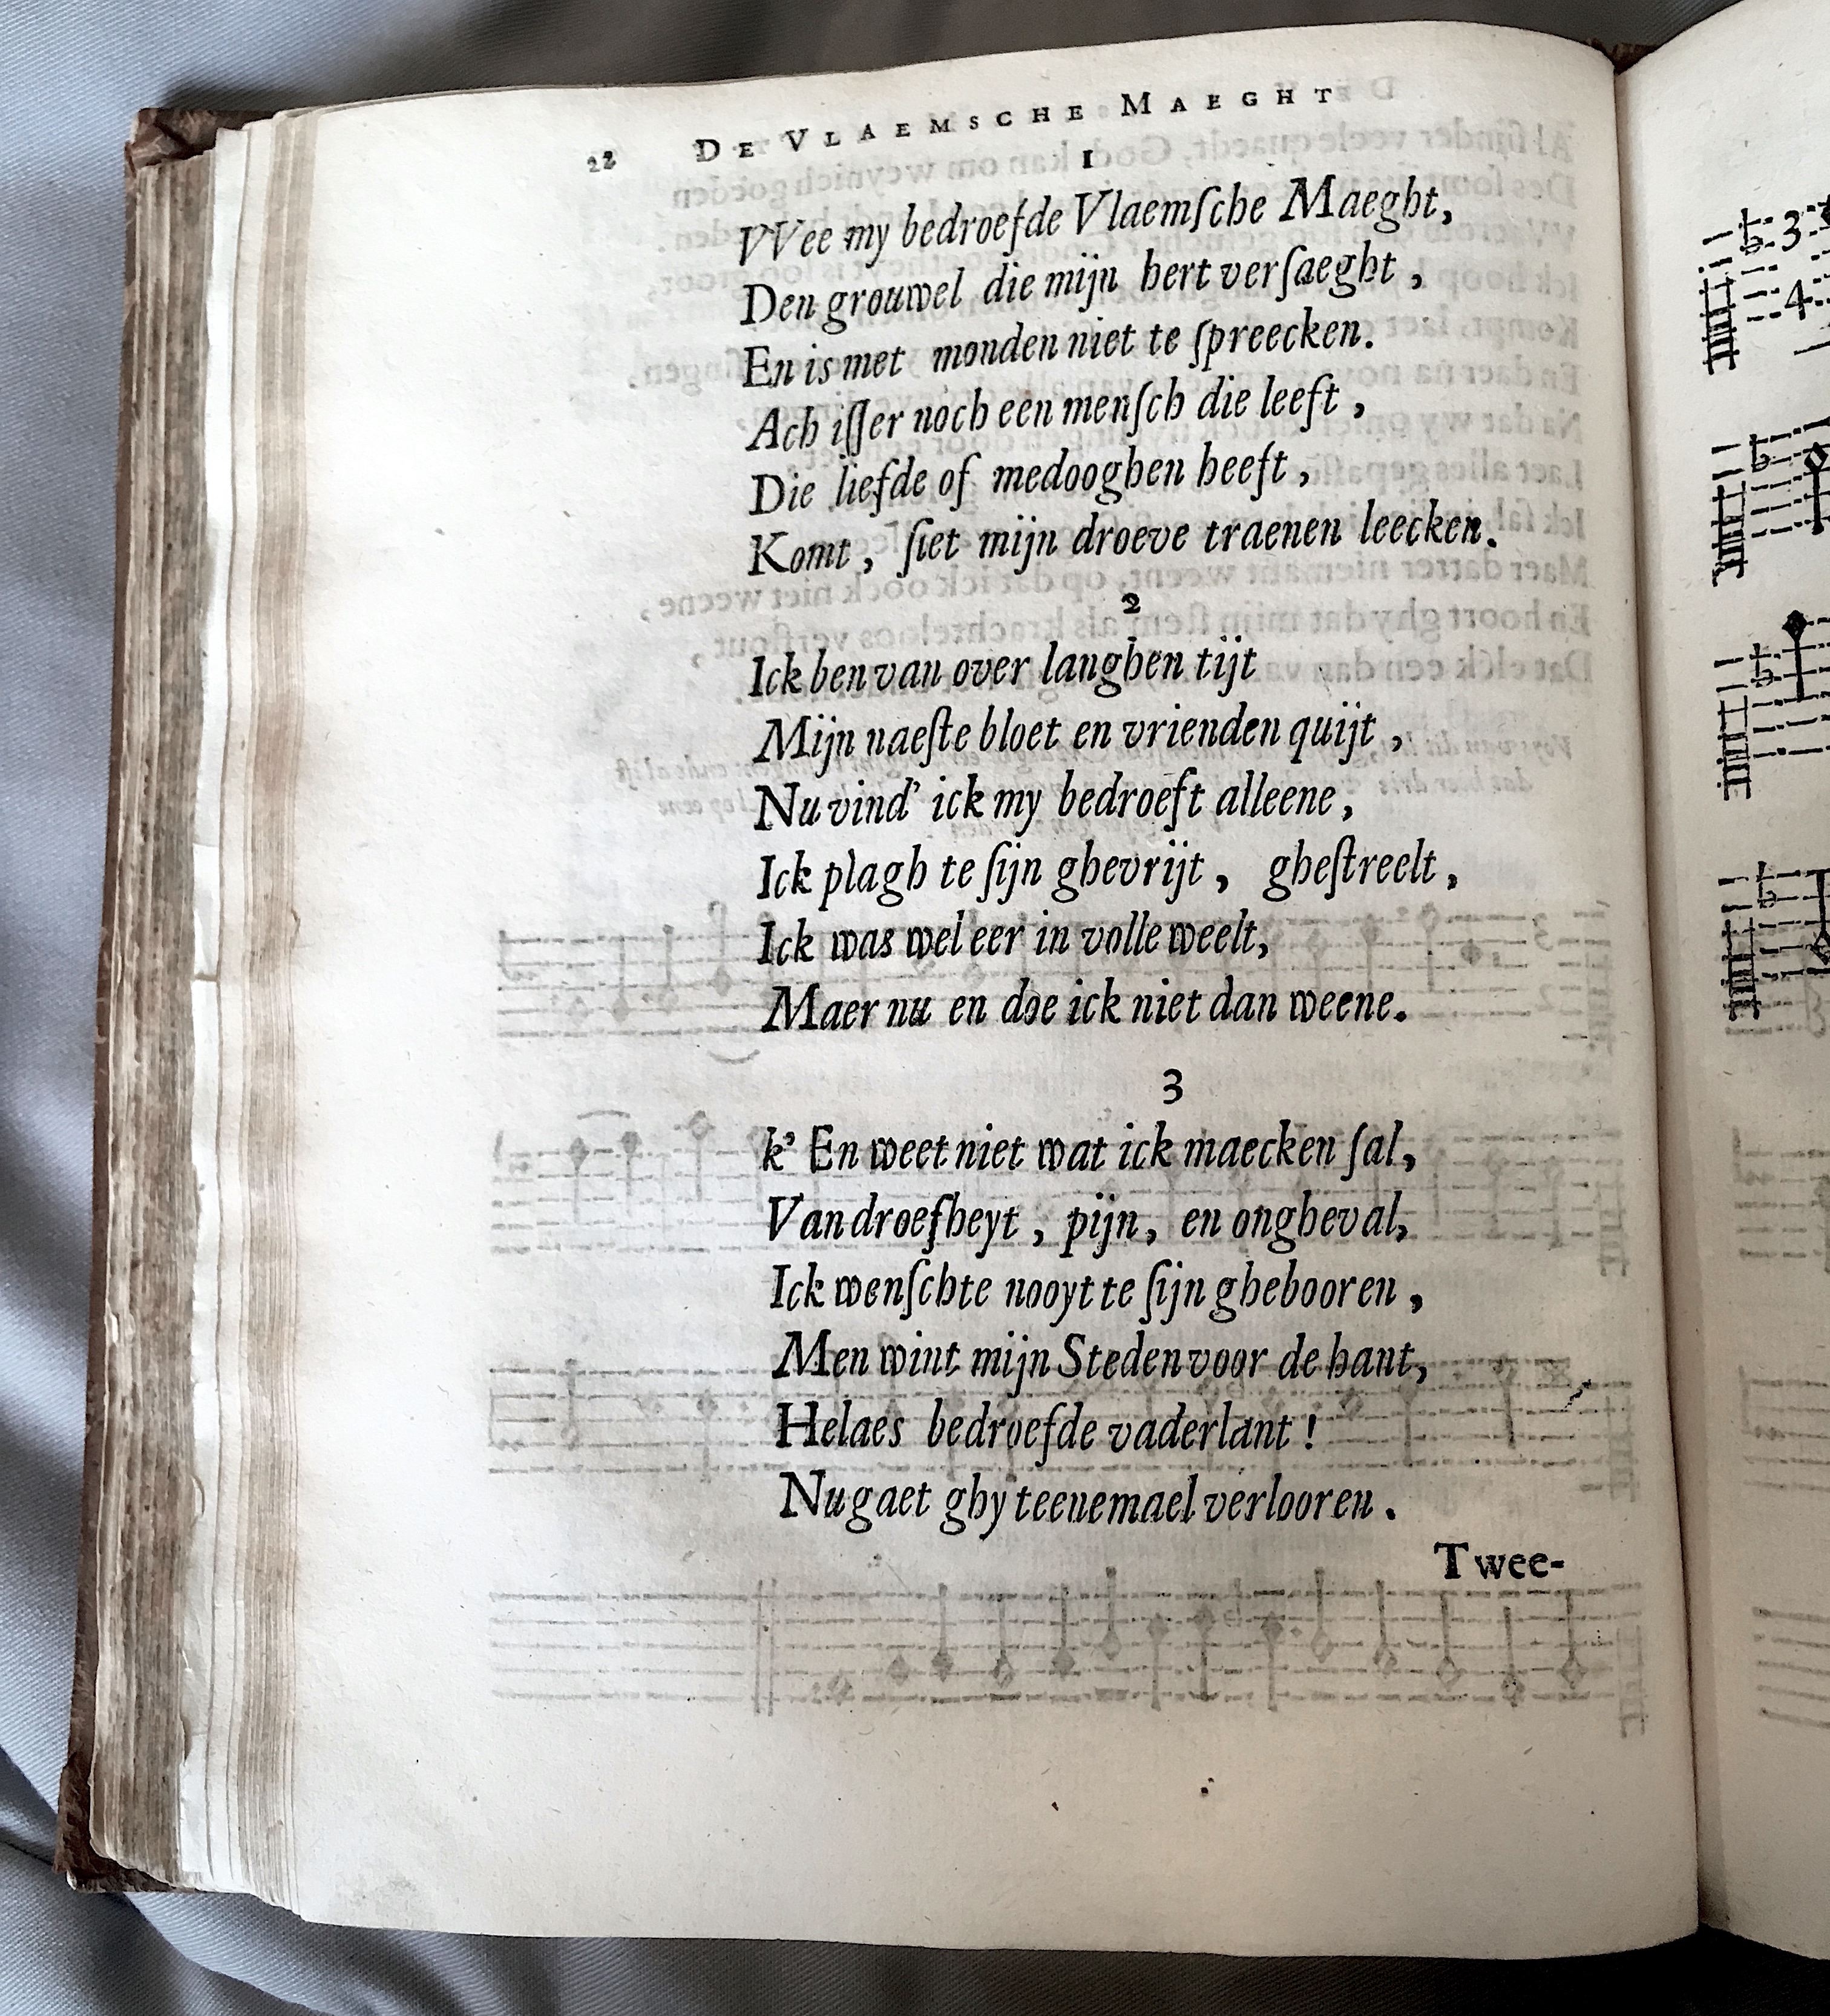 22 DE VLAEMSCHE MAEGHT
1
VVee my bedroefde Vlaemſche Maeght,
Den grouwel die mijn hert verſaeght,
En is met monden niet te ſpreecken.
Ach iſſer noch een menſch die leeft,
Die liefde of medooghen heeft,
Komt, ſiet mijn droeve traenen leecken.
2
Ick ben van over langhen tijt
Mijn naeſte bloet en vrienden quijt,
Nu vind' ick my bedroeft alleene,
Ick plagh te ſijn ghevrijt, gheſtreelt,
Ick was wel eer in volle weelt,
Maer nu en doe ick niet dan weene.
3
k' En weet niet wat ick maecken ſal,
Van droefheyt, pijn, en ongheval,
Ick wenſchte nooyt te ſijn ghebooren,
Men wint mijn Steden voor de hant,
Helaes bedroefde vaderlant!
Nu gaet ghy teenemael verlooren.
Twee-
3
4